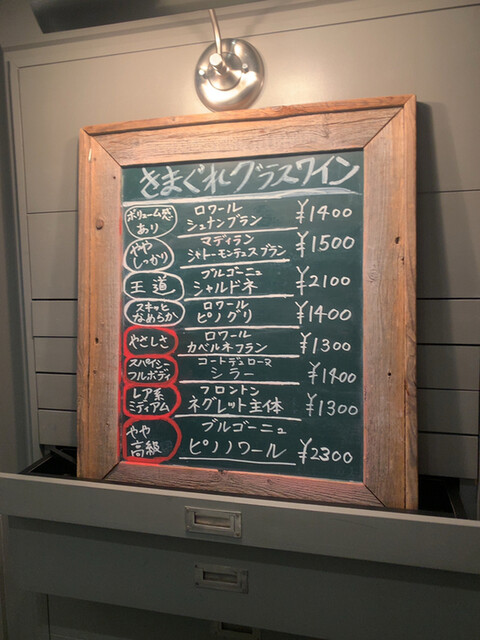 きまぐれグラスワイン
ボリューム感
あり
ロワール
シュナンブラン
¥1400
やや
しっかり
マディラン
シャトーモンテュスブラン
¥1500
王道
ブルゴーニュ
シャルドネ
¥2100
スキッと
なめらか
ロワール
ピノグリ
¥1400
やさしさ
ロワール
カベルネフラン
¥1300
スペイシー
フルボディ
コートデュローヌ
シラー
¥1400
レア系
ミディアム
フロントン
ネグレット主体
¥1300
やや
高級
ブルゴーニュ
ピノノワール
¥2300